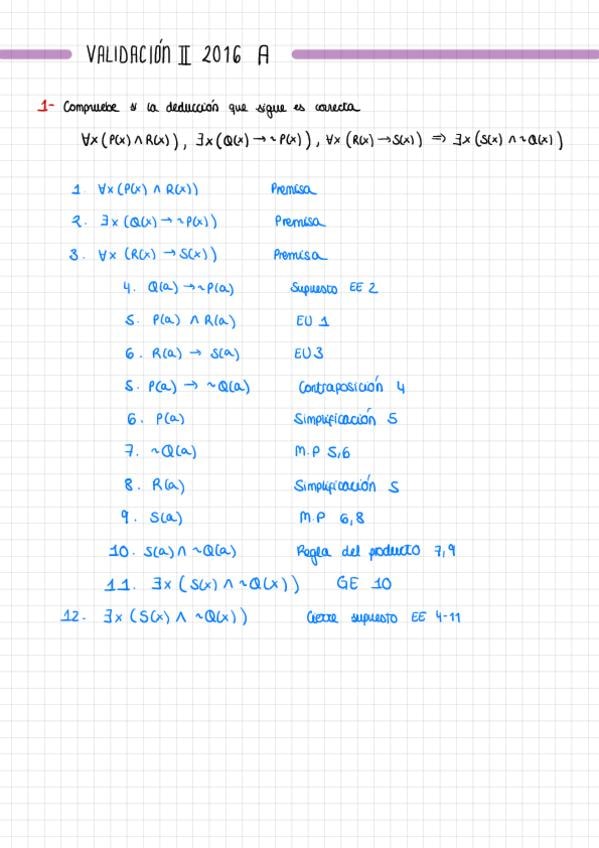 VALIDACIÓN II 2016 A
1- Compruebe si la deducción que sigue es correcta
∀x(P(x) ∧ R(x)), ∃x(Q(x) → ~P(x)), ∀x(R(x) → S(x)) ⇒ ∃x(S(x) ∧ ~Q(x))
1. ∀x(P(x) ∧ R(x)) Premisa
2. ∃x(Q(x) → ~P(x)) Premisa
3. ∀x (R(x) → S(x)) Premisa
4. Q(a) → ~P(a) Supuesto EE 2
5. P(a) ∧ R(a) EU 1
6. R(a) → S(a) EU 3
5. P(a) → ~Q(a) Contraposición 4
6. P(a) Simplificación 5
7. ~Q(a) M.P 5,6
8. R(a) Simplificación 5
9. S(a) M.P 6,8
10. S(a) ∧ ~Q(a) Regla del producto 7,9
11. ∃x (S(x) ∧ ~Q(x)) GE 10
12. ∃x (S(x) ∧ ~Q(x)) Cierre supuesto EE 4-11